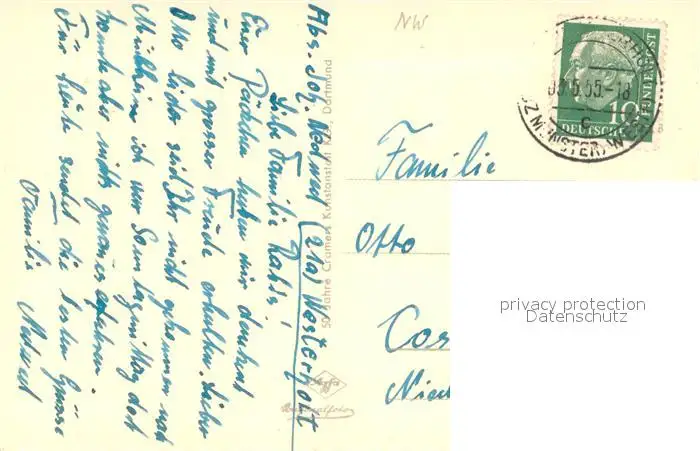 Abs. Joh. (21a) Westerholt
Liebe Familie
Euer Päckchen haben wir dankend
und mit grosser Freude erhalten. Lieber
Otto leider seid Ihr nicht gekommen nach
Mülheim ich war Sonntagmittag dort
konnte aber nichts genaues erfahren.
Für heute sendet die besten Grüsse
Familie
50 Jahre Cramers Kunstanstalt KG., Dortmund
Agfa
NW
Familie
Otto
Cos
Nied
10
DEUTSCHE BUNDESPOST
5.55.-18
c
(BZ MÜNSTER, WESTF)
privacy protection
Datenschutz